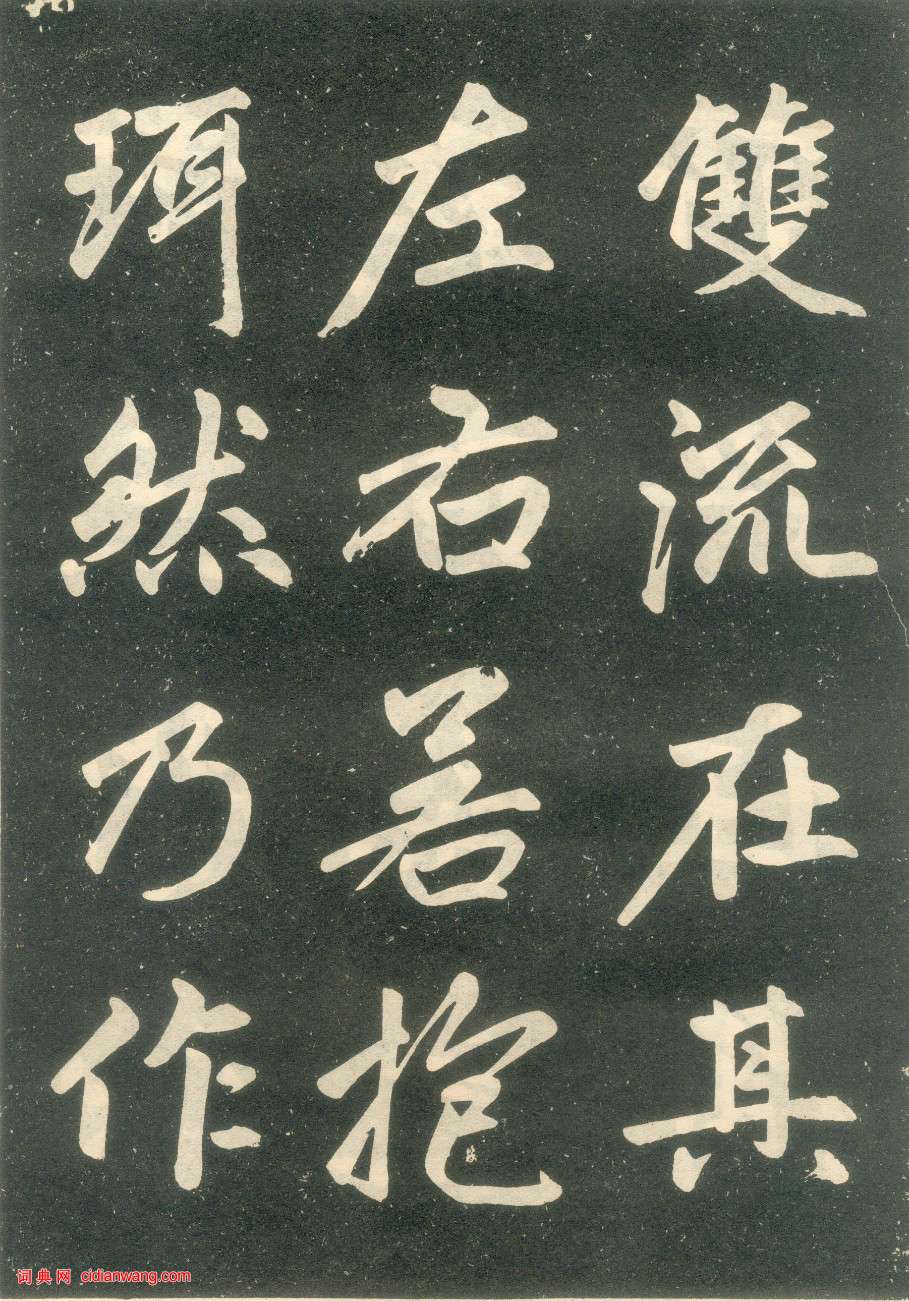 雙流在其
左右若抱
珥然乃作
词典网 cidianwang.com